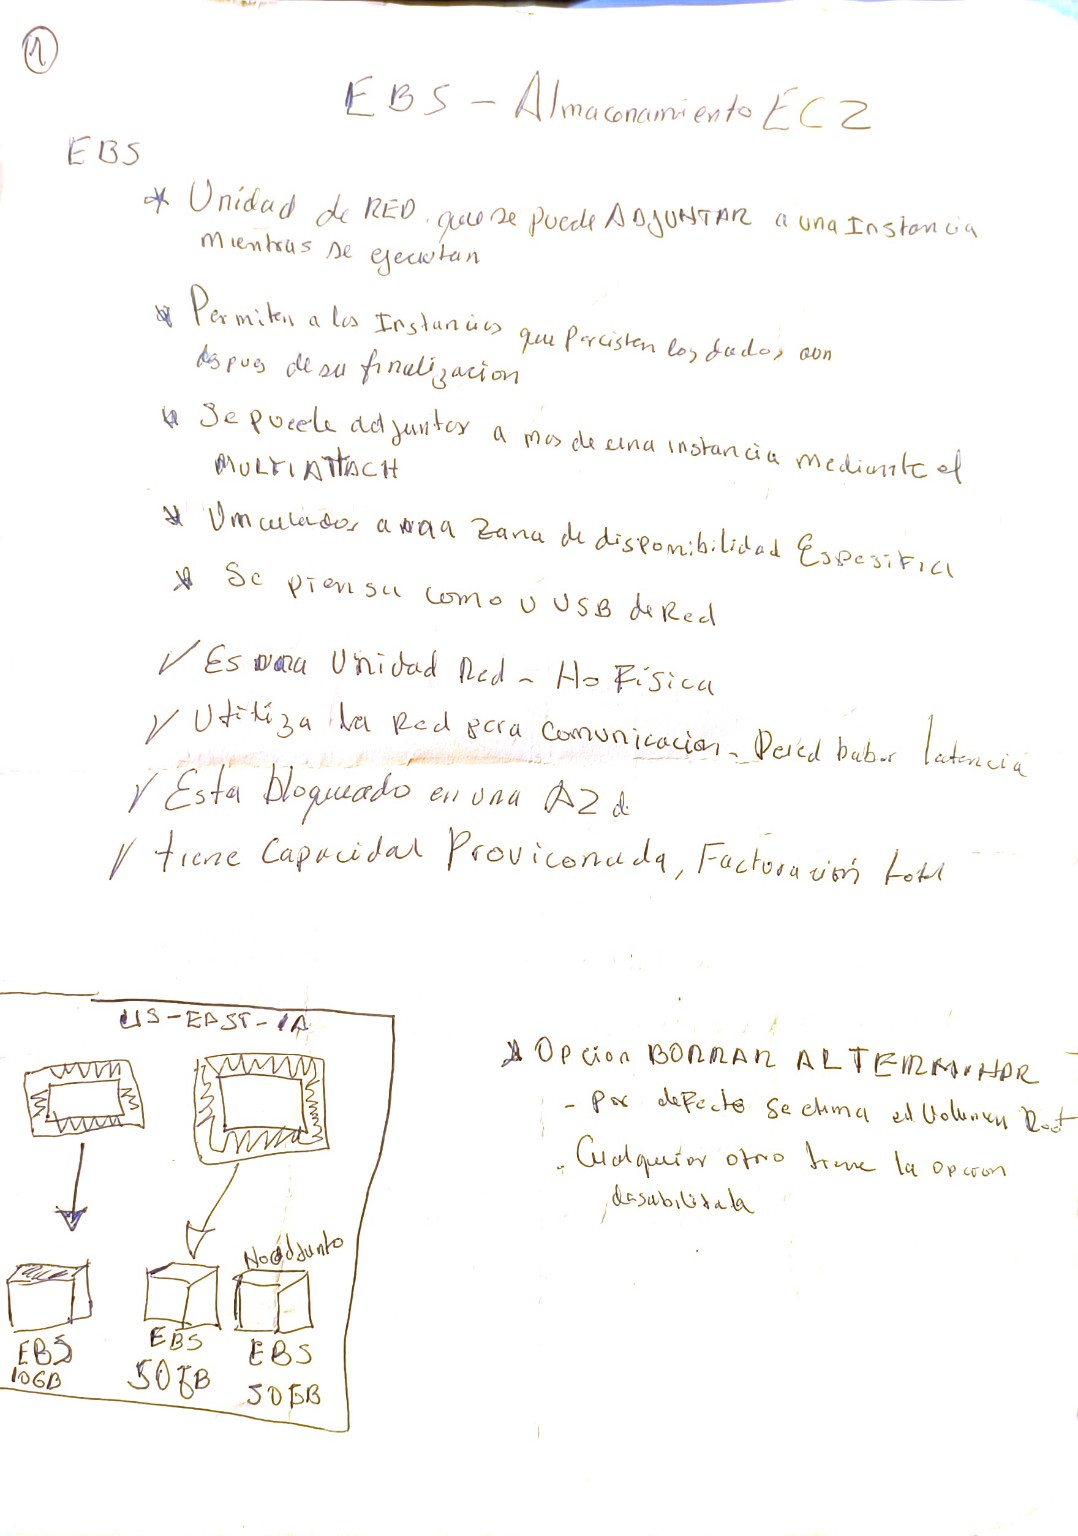 1
EBS - Almaconamiento EC2
EBS
* Unidad de RED. que se puede ADJUNTAR a una Instancia
mientras se ejecutan
* Permiten a las Instancias que Percisten los dados, aun
despues de su finalizacion
* Se puede adjuntar a mas de una instancia mediante el
MULTIATTACH
* Vinculados a una Zana de disponibilidad Espesifica
* Se piensa como U USB de Red
✓ Es una Unidad Red - No Física
✓ Utiliza la Red para comunicacion. haber latencia
✓ Esta bloqueado en una AZ
✓ tiene Capacidad Proviconada, Facturación total
US-EAST-1A
No adjunto
EBS
10GB
EBS
50GB
EBS
50GB
* Opcion BORRAR AL TERMINAR
- por defecto se el Volumen Root
- Cualquier otro tiene la opcion
desabilitada